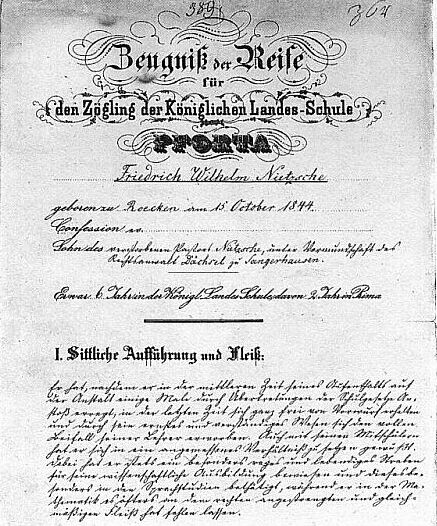 389.
Zeugniß der Reife
für
den Zögling der Königlichen Landes-Schule
PFORTA
Friedrich Wilhelm Nietzsche
geboren zu Roecken am 15 October 1844.
Confession ev.
Sohn des verstorbenen Pastors Nietzsche, unter Vormundschaft des
Rechtsanwalt Dächsel zu Sangerhausen.
Er war 6 Jahr in der Königl. Landes Schule, davon 2 Jahr in Prima
I. Sittliche Aufführung und Fleiß:
Er hat, nachdem er in der mittleren Zeit seines Aufenthalts auf
der Anstalt einige Male durch Uebertretungen der Schulgesetze An-
stoß erregt, in der letzten Zeit sich ganz frei von Vorwurf erhalten
und durch sein ernstes und verständiges Wesen sich den vollen
Beifall seiner Lehrer erworben. Auch mit seinen Mitschülern
hat er sich in ein angemessenes Verhältniß zu setzen gewußt.
Dabei hat er stets ein besonders reges und lebendiges Streben
für seine wissenschaftliche Ausbildung bewiesen und dieses be-
sonders in den Sprachstudien bethätigt, während er in der Ma-
thematik es öfters an dem rechten angestrengten und gleich-
mäßigen Fleiß hat fehlen lassen.